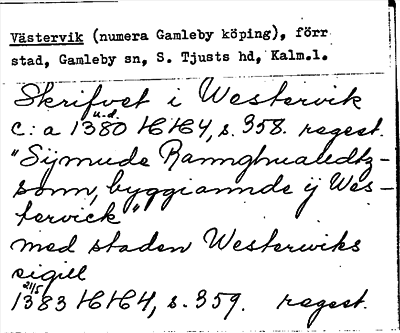 Västervik (numera Gamleby köping), förr
stad, Gamleby sn, S. Tjusts hd, Kalm.l.
Skrifvet i Westervik
u.d.
c:a 1380 HH4, s. 358. regest.
"Sijmude Rannghualdtz-
sonn, byggiannde ij Wes-
tervick"
med staden Westerwiks
sigill
21/5
1383 HH4, s. 359. regest.